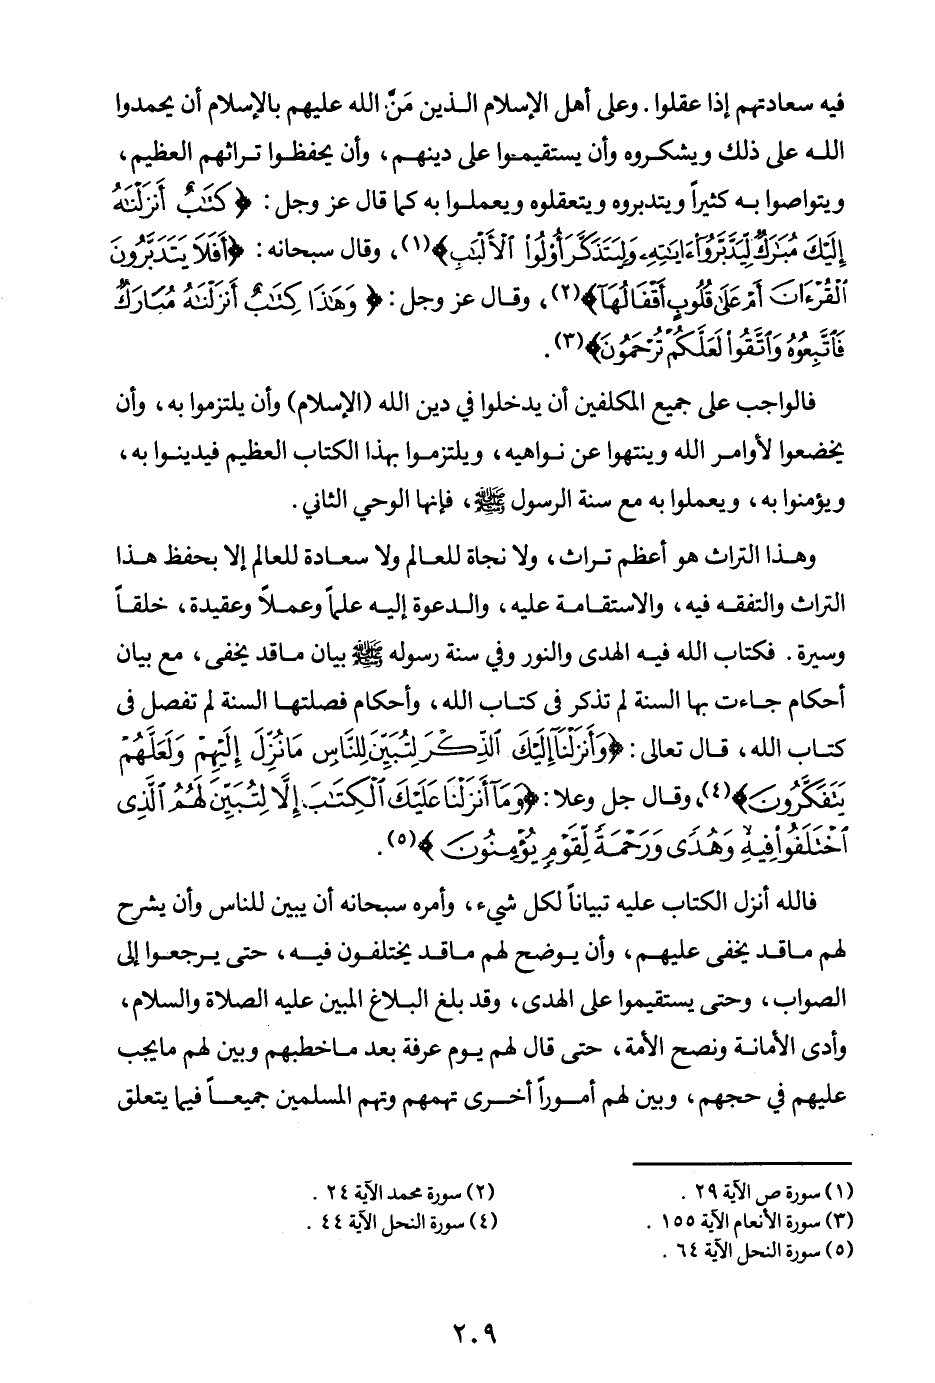 فيه سعادتهم إذا عقلوا. وعلى أهل الإسلام الذين مَنَّ الله عليهم بالإسلام أن يحمدوا
الله على ذلك ويشكروه وأن يستقيموا على دينهم، وأن يحفظوا تراثهم العظيم،
ويتواصوا به كثيراً ويتدبروه ويتعقلوه ويعملوا به كما قال عز وجل: ﴿كِتَٰبٌ أَنزَلْنَٰهُ
إِلَيْكَ مُبَٰرَكٌ لِّيَدَّبَّرُوٓا۟ ءَايَٰتِهِۦ وَلِيَتَذَكَّرَ أُو۟لُوا۟ ٱلْأَلْبَٰبِ﴾(١)، وقال سبحانه: ﴿أَفَلَا يَتَدَبَّرُونَ
ٱلْقُرْءَانَ أَمْ عَلَىٰ قُلُوبٍ أَقْفَالُهَآ﴾(٢)، وقال عز وجل: ﴿وَهَٰذَا كِتَٰبٌ أَنزَلْنَٰهُ مُبَارَكٌ
فَٱتَّبِعُوهُ وَٱتَّقُوا۟ لَعَلَّكُمْ تُرْحَمُونَ﴾(٣).
فالواجب على جميع المكلفين أن يدخلوا في دين الله (الإسلام) وأن يلتزموا به، وأن
يخضعوا لأوامر الله وينتهوا عن نواهيه، ويلتزموا بهذا الكتاب العظيم فيدينوا به،
ويؤمنوا به، ويعملوا به مع سنة الرسول ﷺ، فإنها الوحي الثاني.
وهذا التراث هو أعظم تراث، ولا نجاة للعالم ولا سعادة للعالم إلا بحفظ هذا
التراث والتفقه فيه، والاستقامة عليه، والدعوة إليه علماً وعملاً وعقيدة، خلقاً
وسيرة. فكتاب الله فيه الهدى والنور وفي سنة رسوله ﷺ بيان ماقد يخفى، مع بيان
أحكام جاءت بها السنة لم تذكر في كتاب الله، وأحكام فصلتها السنة لم تفصل في
كتاب الله، قال تعالى: ﴿وَأَنزَلْنَآ إِلَيْكَ ٱلذِّكْرَ لِتُبَيِّنَ لِلنَّاسِ مَا نُزِّلَ إِلَيْهِمْ وَلَعَلَّهُمْ
يَتَفَكَّرُونَ﴾(٤)، وقال جل وعلا: ﴿وَمَآ أَنزَلْنَا عَلَيْكَ ٱلْكِتَٰبَ إِلَّا لِتُبَيِّنَ لَهُمُ ٱلَّذِى
ٱخْتَلَفُوا۟ فِيهِ وَهُدًى وَرَحْمَةً لِّقَوْمٍ يُؤْمِنُونَ﴾(٥).
فالله أنزل الكتاب عليه تبياناً لكل شيء، وأمره سبحانه أن يبين للناس وأن يشرح
لهم ماقد يخفى عليهم، وأن يوضح لهم ماقد يختلفون فيه، حتى يرجعوا إلى
الصواب، وحتى يستقيموا على الهدى، وقد بلغ البلاغ المبين عليه الصلاة والسلام،
وأدى الأمانة ونصح الأمة، حتى قال لهم يوم عرفة بعد ماخطبهم وبين لهم مايجب
عليهم في حجهم، وبين لهم أموراً أخرى تهمهم وتهم المسلمين جميعاً فيما يتعلق
(١) سورة ص الآية ٢٩. (٢) سورة محمد الآية ٢٤.
(٣) سورة الأنعام الآية ١٥٥. (٤) سورة النحل الآية ٤٤.
(٥) سورة النحل الآية ٦٤.
٢٠٩